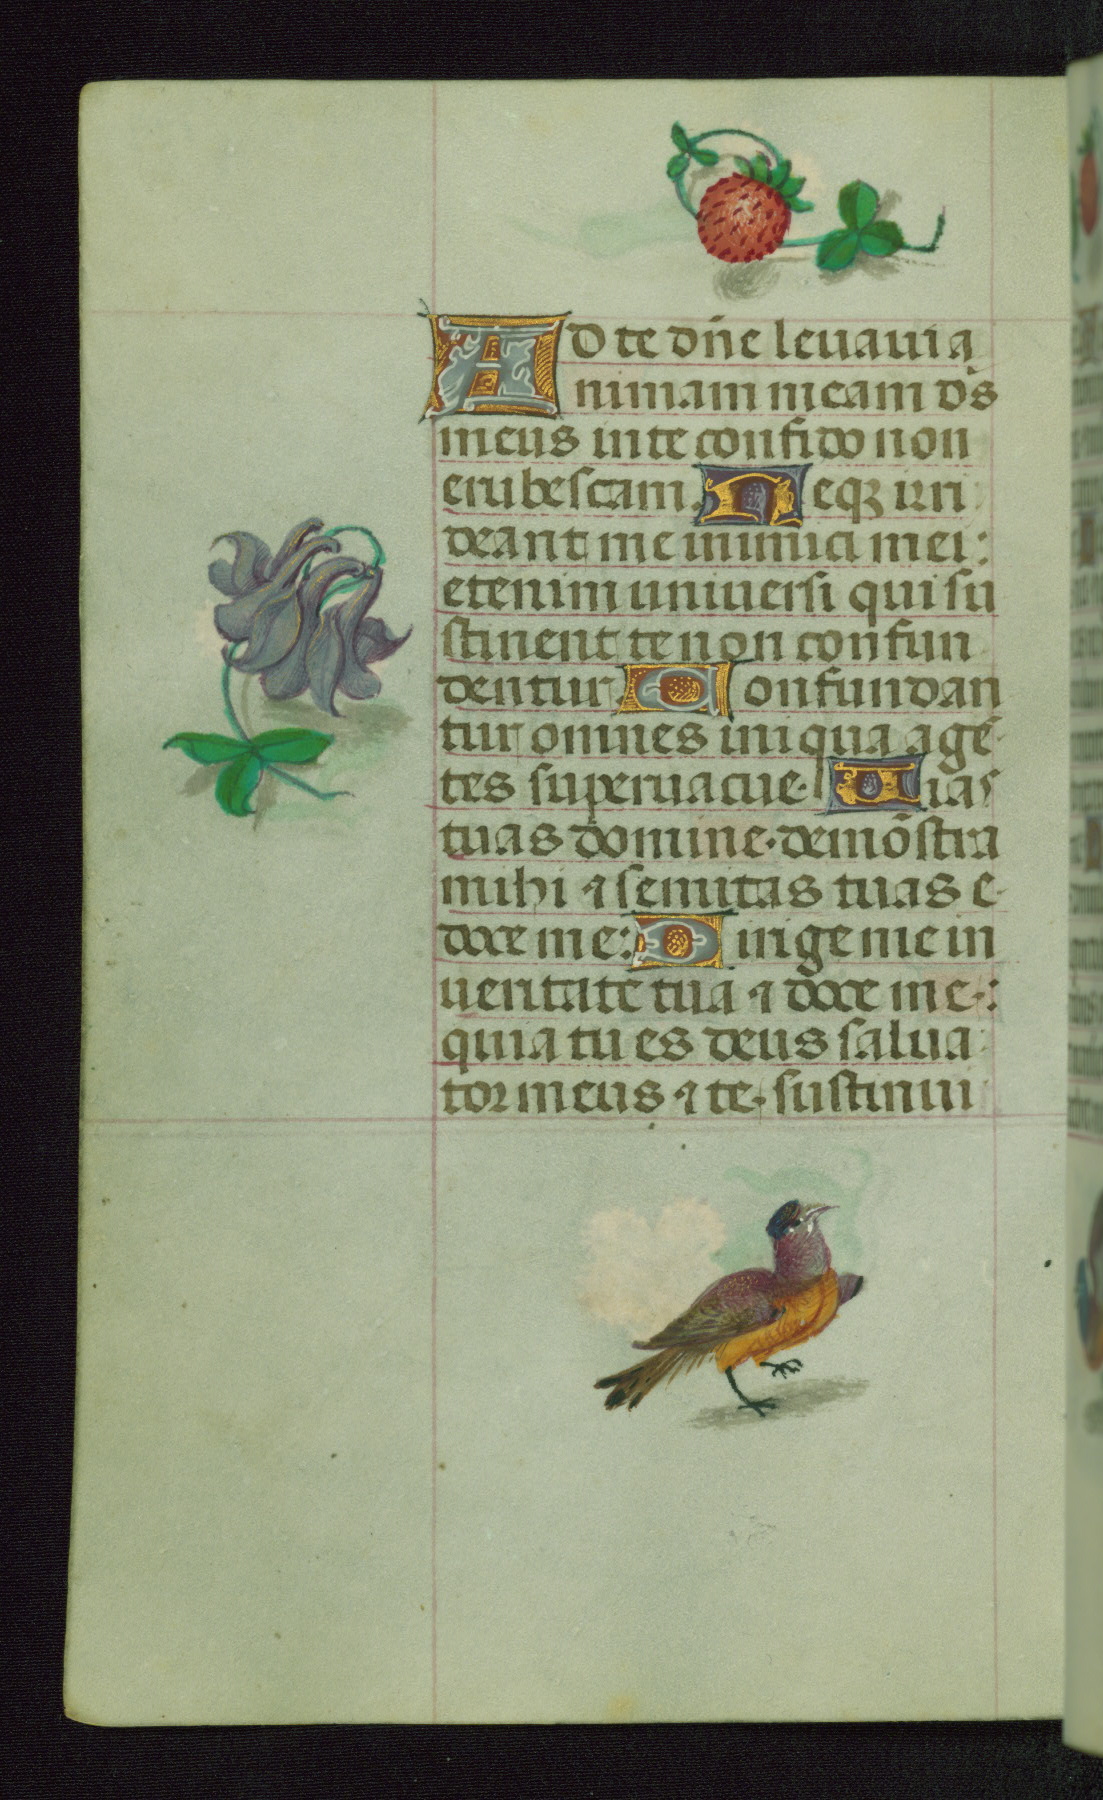 AD te dn̄e levavi a
nimam meam ds̄
meus in te confido non
erubescam. Neqꝫ irri
deant me inimici mei:
etenim universi qui su
stinent te non confun
dentur. Confundan
tur omnes iniqua agē
tes supervacue. Vias
tuas domine. demōstra
mihi ⁊ semitas tuas e
doce me: Dirige me in
veritate tua ⁊ doce me:
quia tu es deus salva
tor meus ⁊ te. sustinui